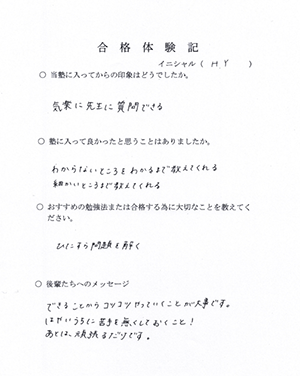 合格体験記
イニシャル ( H Y )
○ 当塾に入ってからの印象はどうでしたか。
気楽に先生に質問できる
○ 塾に入って良かったと思うことはありましたか。
わからないところをわかるまで教えてくれる
細かいところまで教えてくれる
○ おすすめの勉強法または合格する為に大切なことを教えてく
ださい。
ひたすら問題を解く
○ 後輩たちへのメッセージ
できることからコツコツやっていくことが大事です。
はやいうちに苦手を無くしておくこと!
あとは、頑張るだけです。